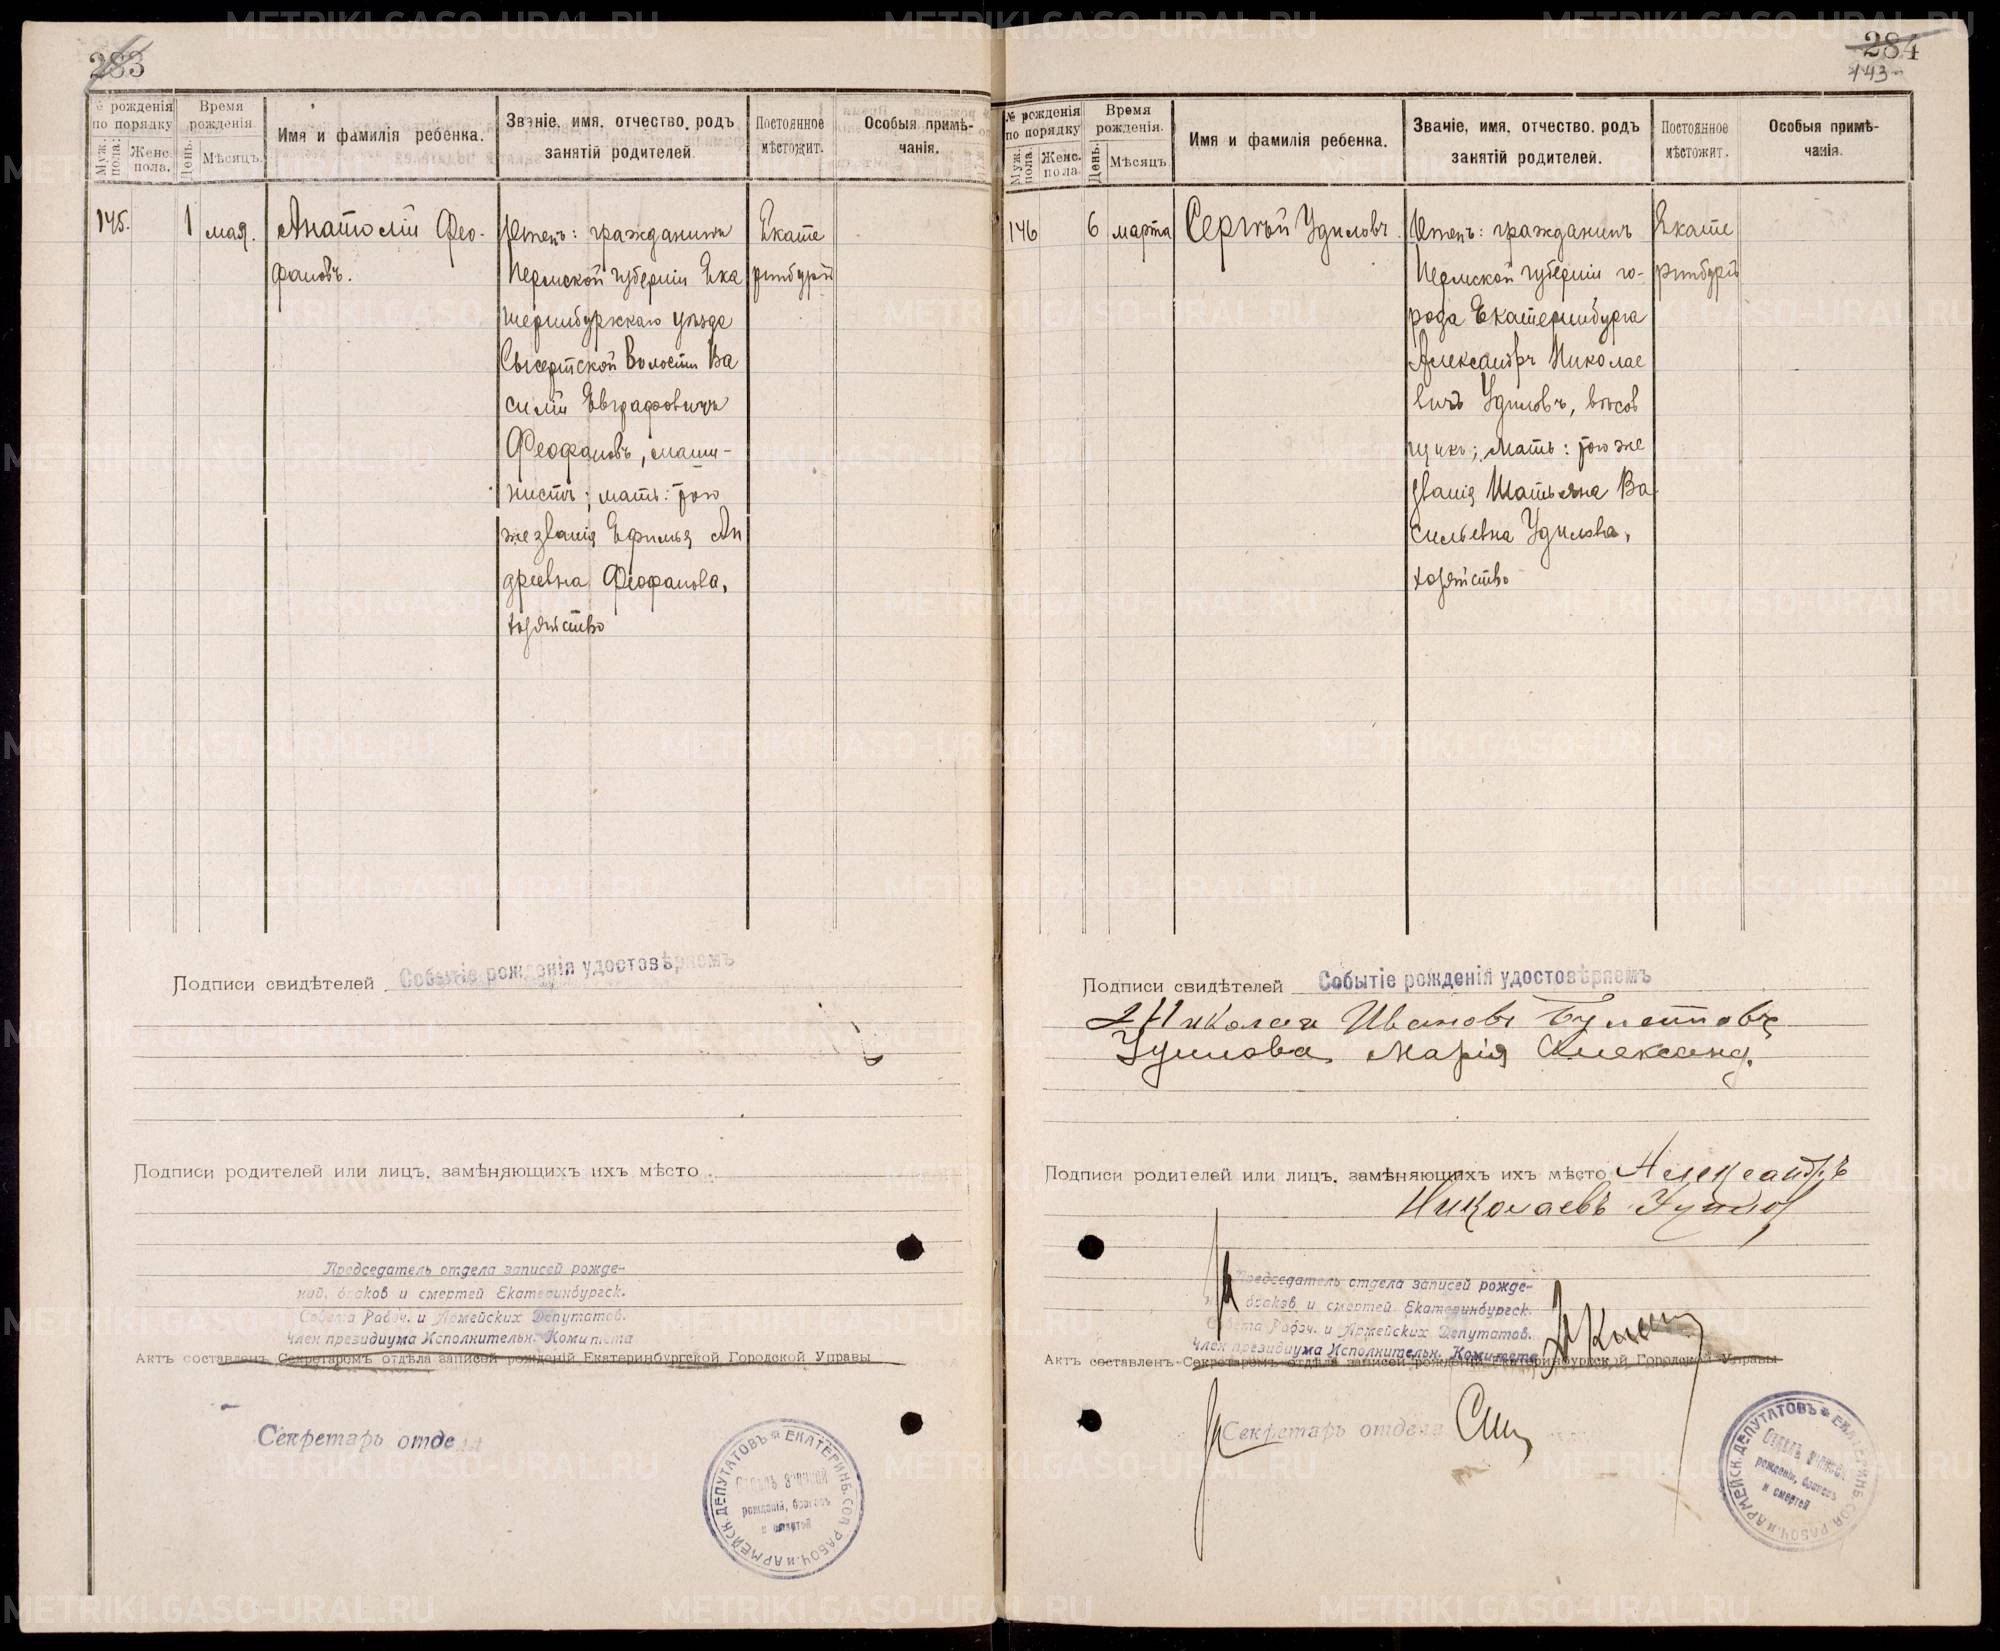 283
№ рожденія по порядку
Муж. пола.
Женс. пола.
Время рожденія.
День.
Мѣсяцъ.
Имя и фамилія ребенка.
Званіе, имя, отчество, родъ
занятій родителей.
Постоянное
мѣстожит.
Особыя примѣ-
чанія.
145.
1
мая.
Анатолій Фео-
фановъ.
Отецъ: гражданинъ
Пермской губерніи Ека
теринбургскаго уѣзда
Сысертской волости Ва
силій Евграфовичъ
Феофановъ, маши-
нистъ; мать: того
же званія Ефимья Ан
дреевна Феофанова,
хозяйство
Екате
ринбургъ
Подписи свидѣтелей
Событіе рожденія удостовѣряемъ
Подписи родителей или лицъ, замѣняющихъ ихъ мѣсто
Председатель отдела записей рожде-
ний, браков и смертей Екатеринбургск.
Совета Рабоч. и Армейских Депутатов.
Член президиума Исполнительн. Комитета
Актъ составленъ Секретаромъ отдѣла записей рожденій Екатеринбургской Городской Управы
Секретарь отдела
ЕКАТЕРИНБ. СОВ. РАБОЧ. и АРМЕЙСК. ДЕПУТАТОВЪ
Отделъ записей
рожденій, браковъ
и смертей
284
143
№ рожденія по порядку
Муж. пола.
Женс. пола.
Время рожденія.
День.
Мѣсяцъ.
Имя и фамилія ребенка.
Званіе, имя, отчество, родъ
занятій родителей.
Постоянное
мѣстожит.
Особыя примѣ-
чанія.
146
6
марта
Сергѣй Удиловъ.
Отецъ: гражданинъ
Пермской губерніи го-
рода Екатеринбурга
Александръ Николае
вичъ Удиловъ, вѣсов
щикъ; мать: того же
званія Татьяна Ва
сильевна Удилова,
хозяйство
Екате
ринбургъ
Подписи свидѣтелей
Событіе рожденія удостовѣряемъ
Николай Ивановъ
Удилова Марія Александ.
Подписи родителей или лицъ, замѣняющихъ ихъ мѣсто Александръ
Николаевъ Удилов
Председатель отдела записей рожде-
браков и смертей Екатеринбургск.
Совета Рабоч. и Армейских Депутатов.
Член президиума Исполнительн. Комитета
Актъ составленъ Секретаромъ отдѣла записей рожденій Екатеринбургской Городской Управы
Секретарь отдела
ЕКАТЕРИНБ. СОВ. РАБОЧ. и АРМЕЙСК. ДЕПУТАТОВЪ
Отделъ записей
рожденій, браковъ
и смертей
METRIKI.GASO-URAL.RU